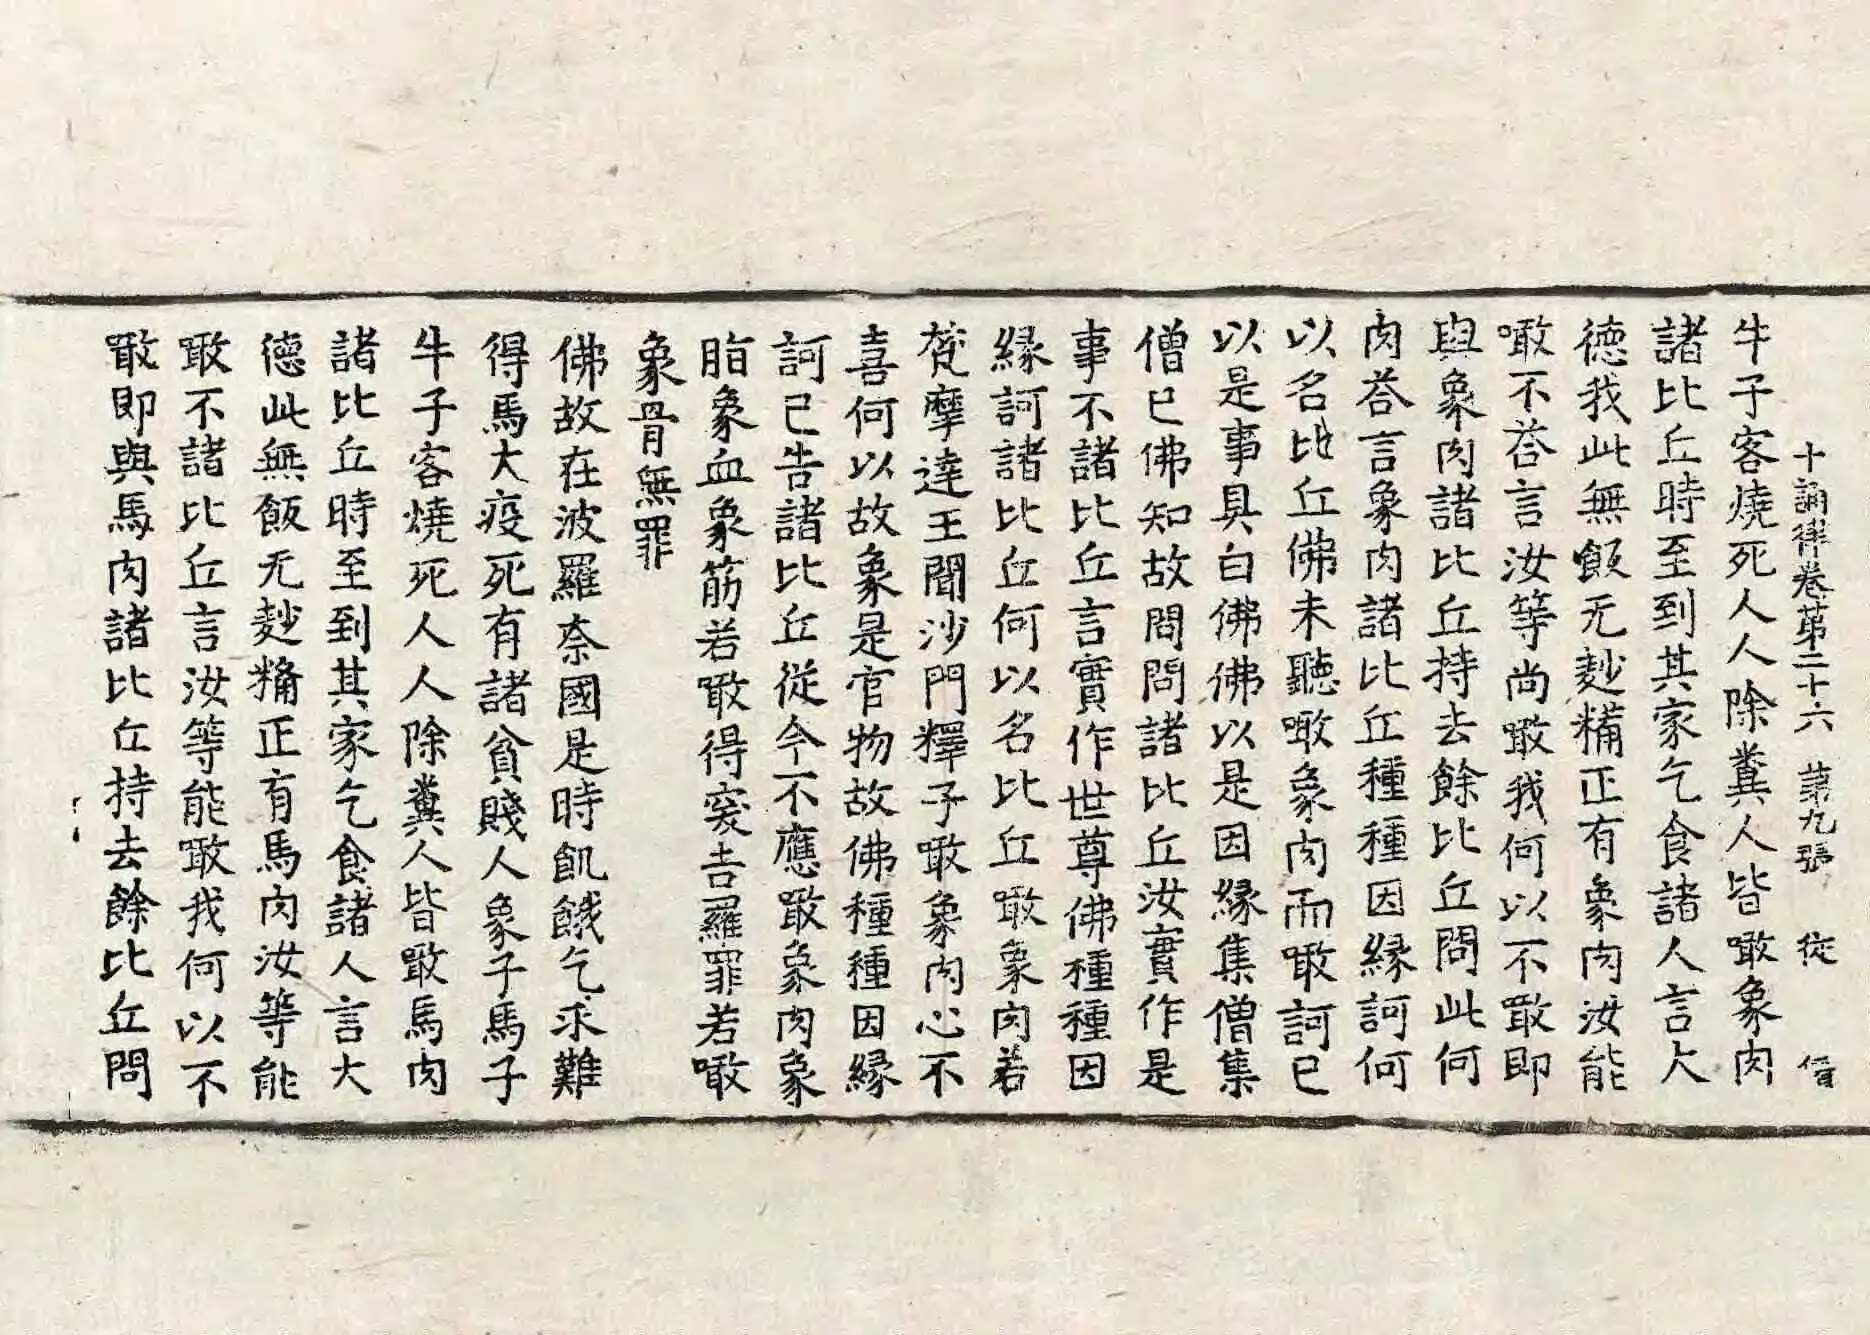 十誦律卷第二十六 第九張 從 信
牛子客燒死人人除糞人皆噉象肉
諸比丘時至到其家乞食諸人言大
德我此無飯无麨糒正有象肉汝能
噉不荅言汝等尚噉我何以不噉即
與象肉諸比丘持去餘比丘問此何
肉荅言象肉諸比丘種種因緣訶何
以名比丘佛未聽噉象肉而噉訶已
以是事具白佛佛以是因緣集僧集
僧已佛知故問問諸比丘汝實作是
事不諸比丘言實作世尊佛種種因
緣訶諸比丘何以名比丘噉象肉若
梵摩達王聞沙門釋子噉象肉心不
喜何以故象是官物故佛種種因緣
訶已告諸比丘從今不應噉象肉象
脂象血象筋若噉得突吉羅罪若噉
象骨無罪
佛故在波羅奈國是時飢餓乞求難
得馬大疫死有諸貧賤人象子馬子
牛子客燒死人人除糞人皆噉馬肉
諸比丘時至到其家乞食諸人言大
德此無飯无麨糒正有馬肉汝等能
噉不諸比丘言汝等能噉我何以不
噉即與馬肉諸比丘持去餘比丘問